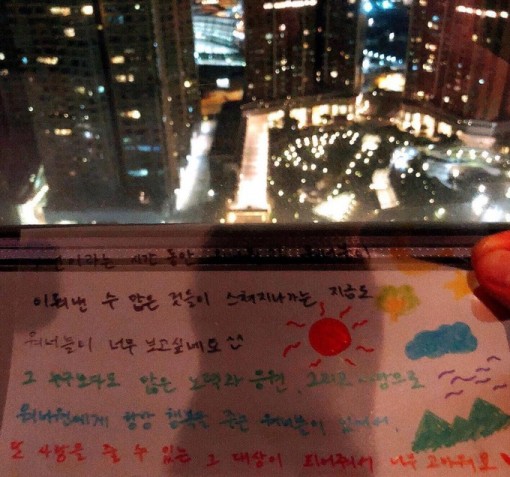 이라는 시간 동안
이뤄낸 수 많은 것들이 스쳐지나가는, 지금도
워너블이 너무 보고싶네요 ^^
그 누구보다도 많은 노력과 응원, 그리고 사랑으로
워너원에게 항상 행복을 주는 워너블이 있어서,
또 사랑을 줄 수 있는 그 대상이 되어줘서 너무 고마워요 ♥